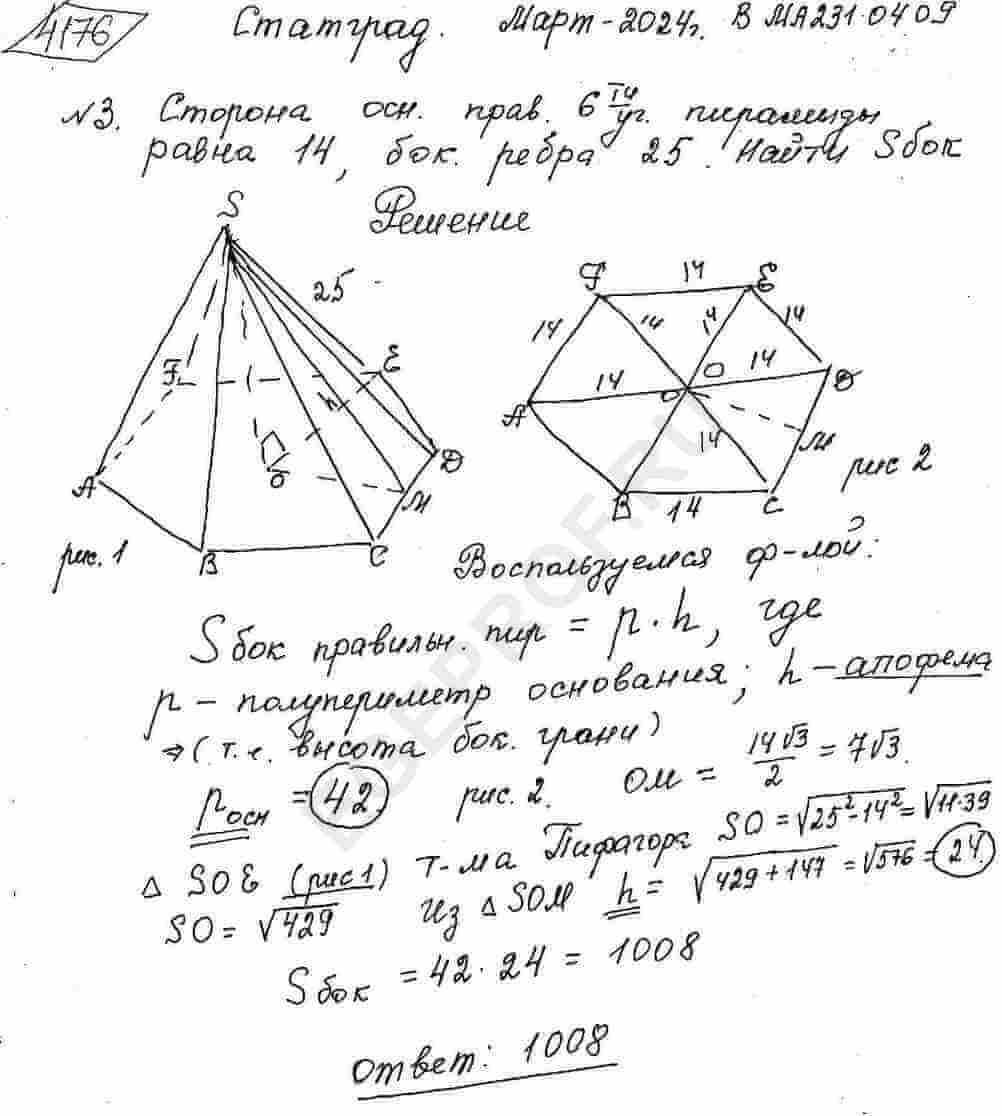 4176
Статград. Март-2024г. В МА2310409
№3. Сторона осн. прав. 6 ти уг. пирамиды
равна 14, бок. ребра 25. Найти Sбок
Решение
S
25
F
E
A
O
D
M
B
C
h
рис. 1
F
14
E
14
14
14
14
14
O
14
D
A
14
M
B
14
C
рис 2
Воспользуемся ф-лой:
Sбок правильн. пир = p · h, где
p – полупериметр основания; h – апофема
⇒ (т.е. высота бок. грани)
pосн = 42 рис. 2. OM = 14√3/2 = 7√3.
△ SOE (рис1) т-ма Пифагора SO = √25²-14² = √11·39
SO = √429 Из △ SOM h = √429+147 = √576 = 24.
Sбок = 42 · 24 = 1008
Ответ: 1008
EGEPROF.RU